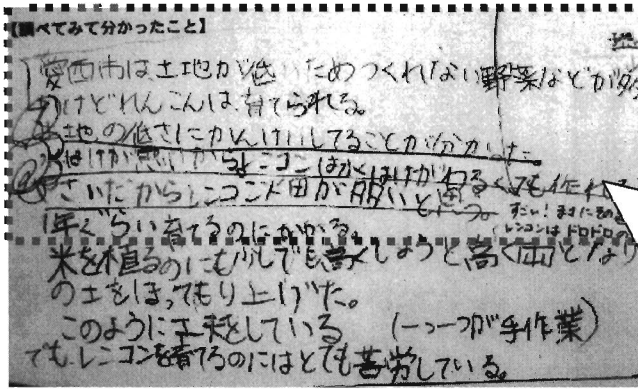 【調べてみて分かったこと】
愛西市は土地が低いためつくれない野菜などが多
いけどれんこんは育てられる。
土地の低さにかんけいしてることが分かった
水はけが悪いからレンコンは水はけがわるくても作れる
やさいだからレンコン田が多いと思った。 すごい!まさにその
レンコンはドロドロの
1年ぐらい育てるのにかかる。
米を植るのにも少しでも高くしようと高く(田)となり
の土をほってもり上げた。
このように工夫をしている (一つ一つが手作業)
でもレンコンを育てるのにはとても苦労している。